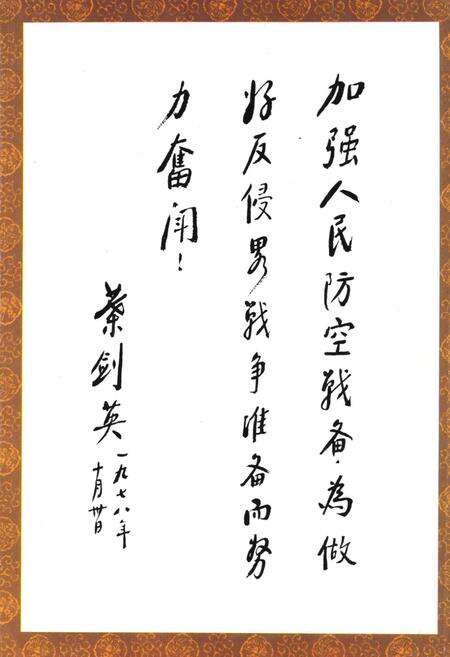 加强人民防空战备,為做
好反侵畧战争准备而努
力奮闘!
葉剑英 一九七八年
十月卅日